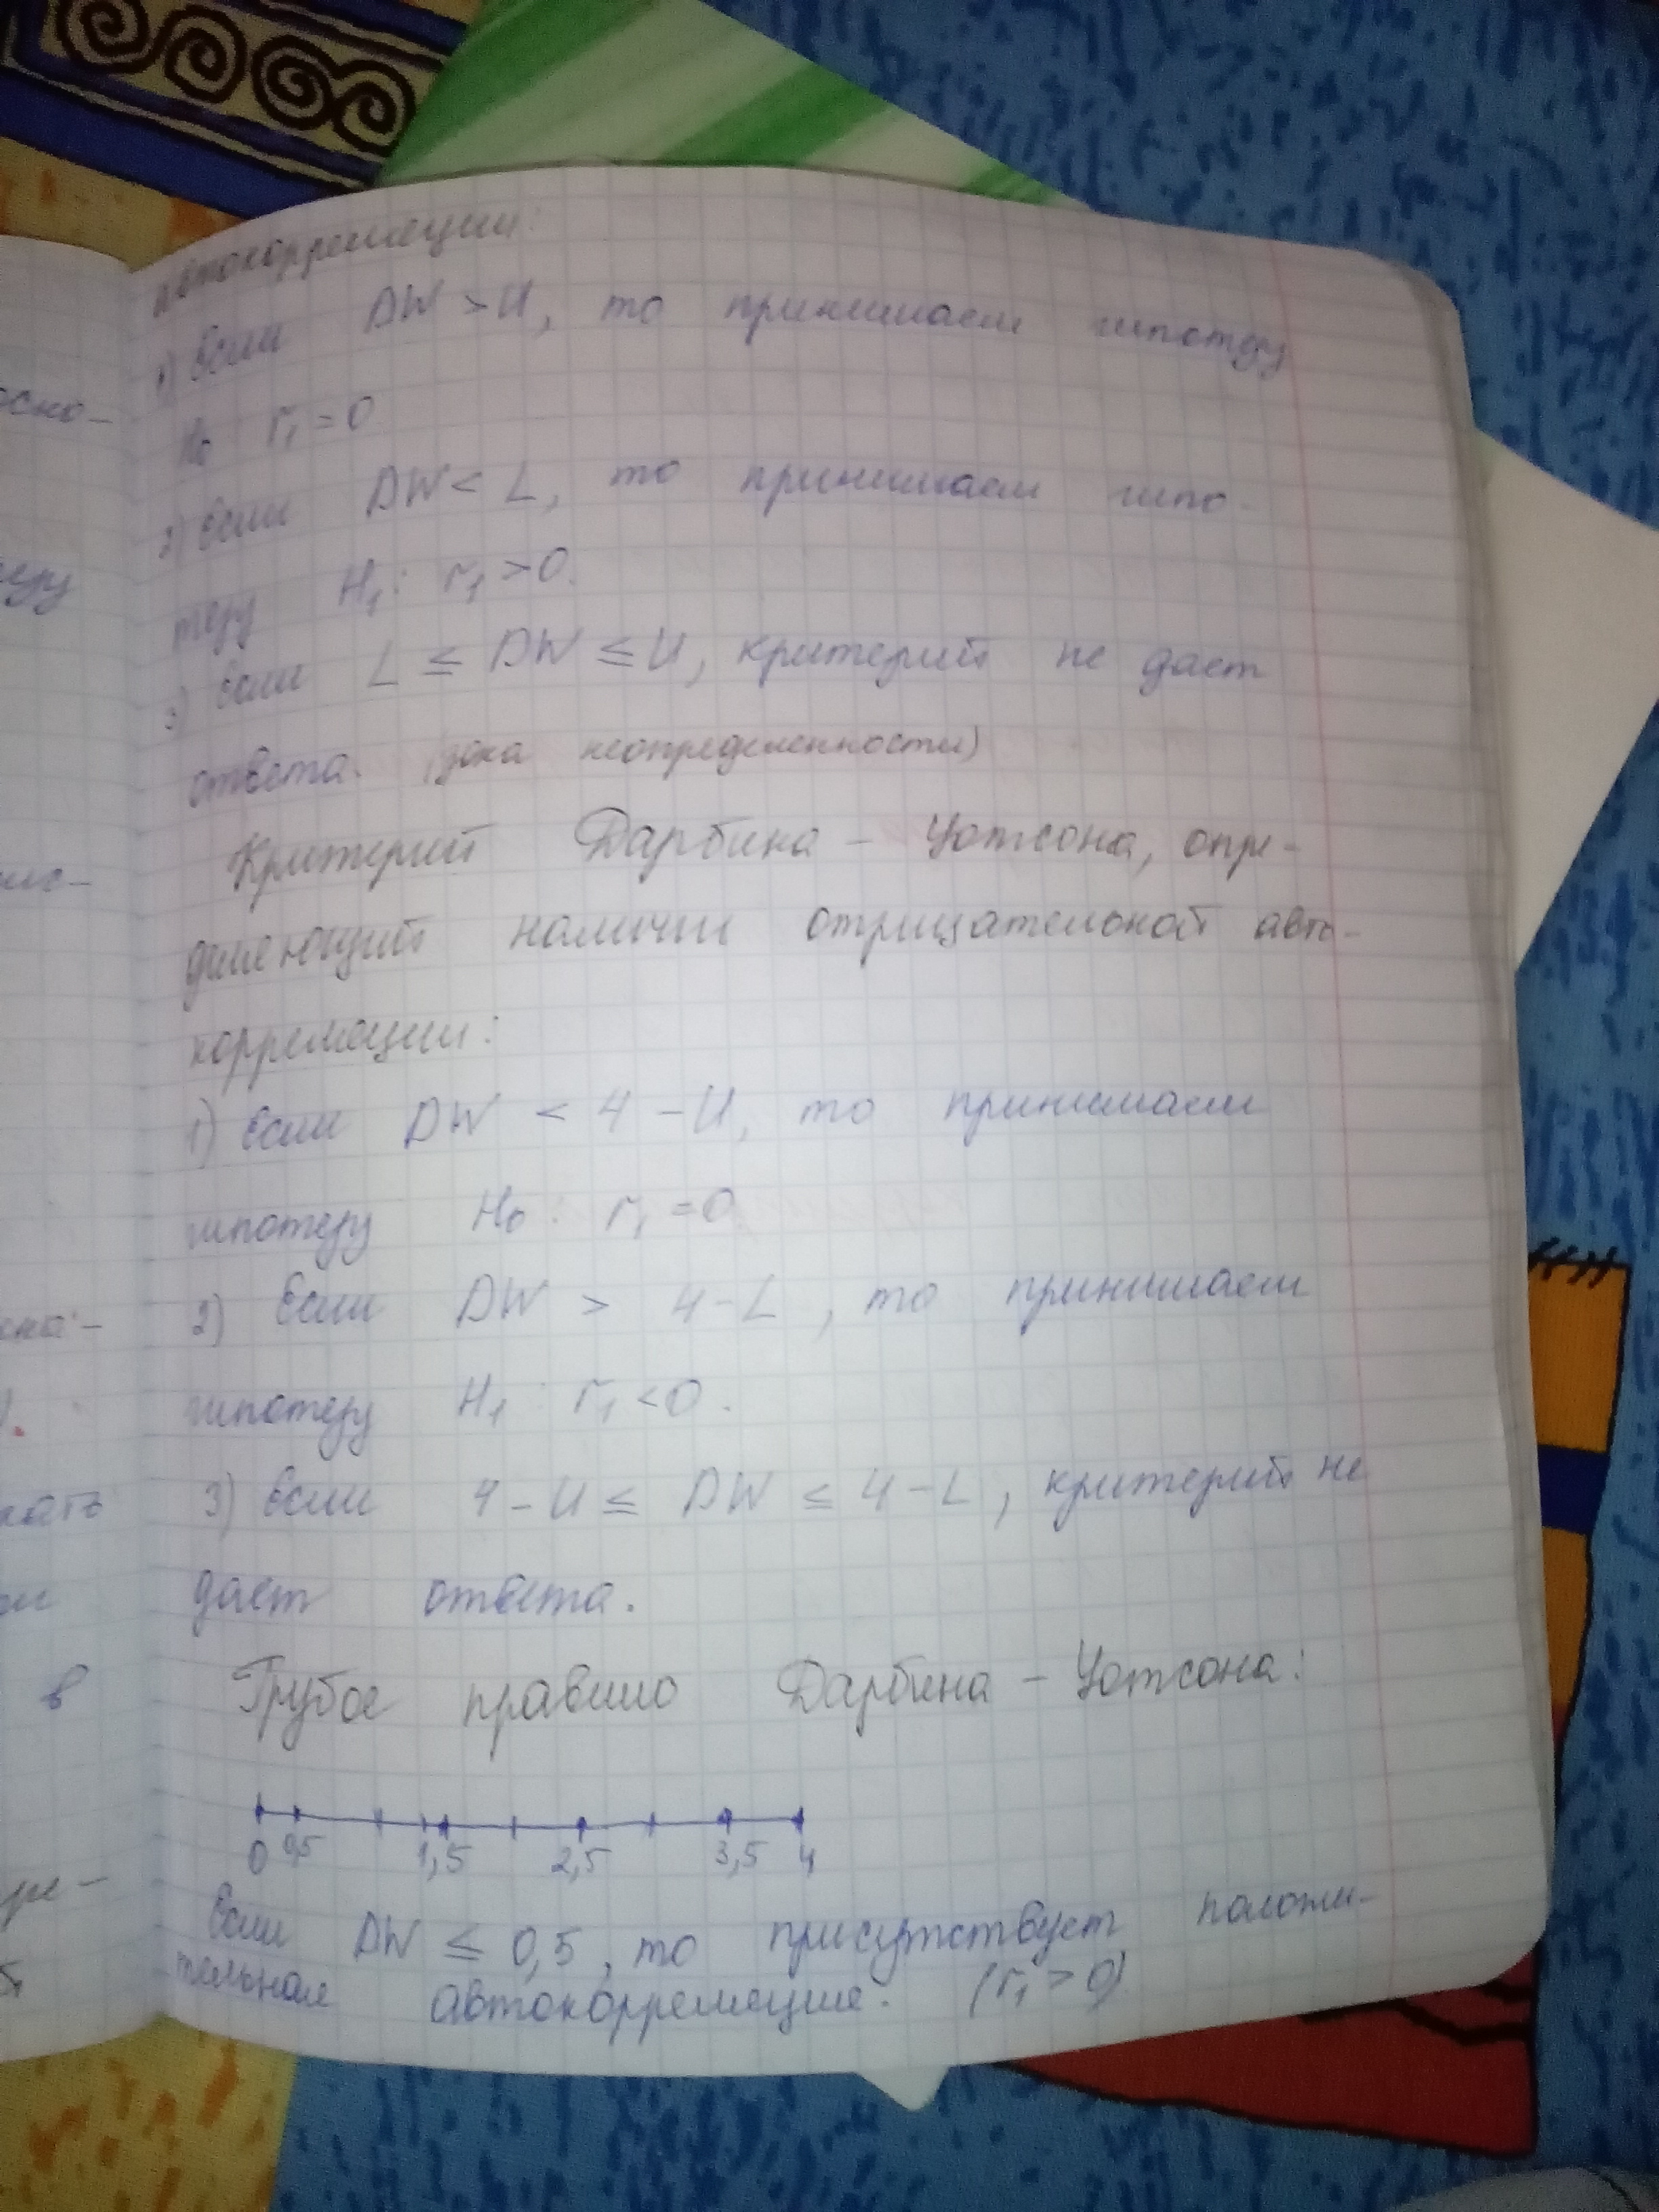 автокорреляции:
1) Если DW > U, то принимаем гипотезу
H₀ r₁ = 0
2) Если DW < L, то принимаем гипо-
тезу H₁: r₁ > 0.
3) Если L ≤ DW ≤ U, критерий не дает
ответа. (зона неопределенности)
Критерий Дарбина – Уотсона, опре-
деляющий наличии отрицательной авто-
корреляции:
1) Если DW < 4 – U, то принимаем
гипотезу H₀: r₁ = 0
2) Если DW > 4 – L, то принимаем
гипотезу H₁: r₁ < 0.
3) Если 4 – U ≤ DW ≤ 4 – L, критерий не
дает ответа.
Грубое правило Дарбина – Уотсона:
0 0,5 1,5 2,5 3,5 4
Если DW ≤ 0,5, то присутствует положи-
тельная автокорреляция. (r₁ > 0)